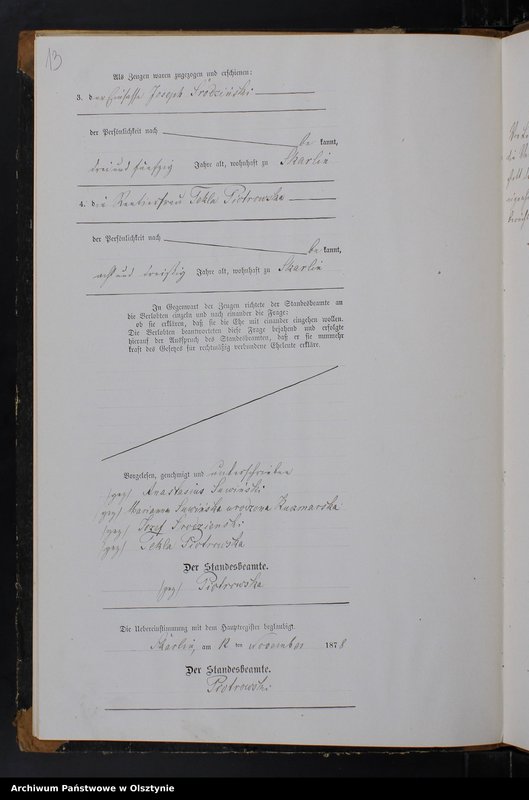 13
Als Zeugen waren zugezogen und erschienen:
3. der Einsasse Joseph Srodzinski
der Persönlichkeit nach
be kannt,
drei und fünfzig Jahre alt, wohnhaft zu Skarlin
4. die Rentierfrau Tekla Piotrowska
der Persönlichkeit nach
be kannt,
acht und dreißig Jahre alt, wohnhaft zu Skarlin
In Gegenwart der Zeugen richtete der Standesbeamte an
die Verlobten einzeln und nach einander die Frage:
ob sie erklären, daß sie die Ehe mit einander eingehen wollen.
Die Verlobten beantworteten diese Frage bejahend und erfolgte
hierauf der Ausspruch des Standesbeamten, daß er sie nunmehr
kraft des Gesetzes für rechtmäßig verbundene Eheleute erkläre.
Vorgelesen, genehmigt und unterschrieben
(gez) Anastasius Suwiński
(gez) Marianna Suwińska urodzona
(gez) Jozef Srodzienski
(gez) Tekla Piotrowska
Der Standesbeamte.
(gez) Piotrowski
Die Uebereinstimmung mit dem Hauptregister beglaubigt
Skarlin, am 12 ten November 1878
Der Standesbeamte.
Piotrowski
Archiwum Państwowe w Olsztynie